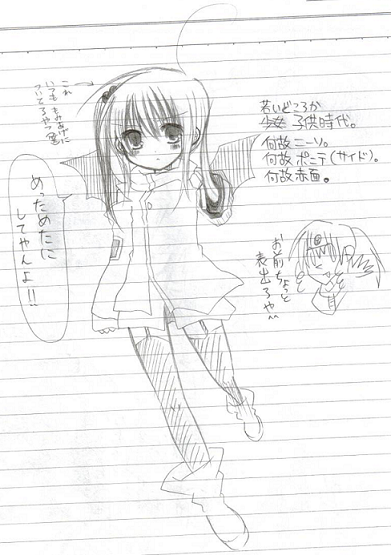 これ
いつももみあげに
ついてるやつ
若いどころか
少女 子供時代。
何故ニーソ。
何故ポニテ(サイド)。
何故赤面。
めっためたに
してやんよ!!
お前ちょっと
表出ろや〜